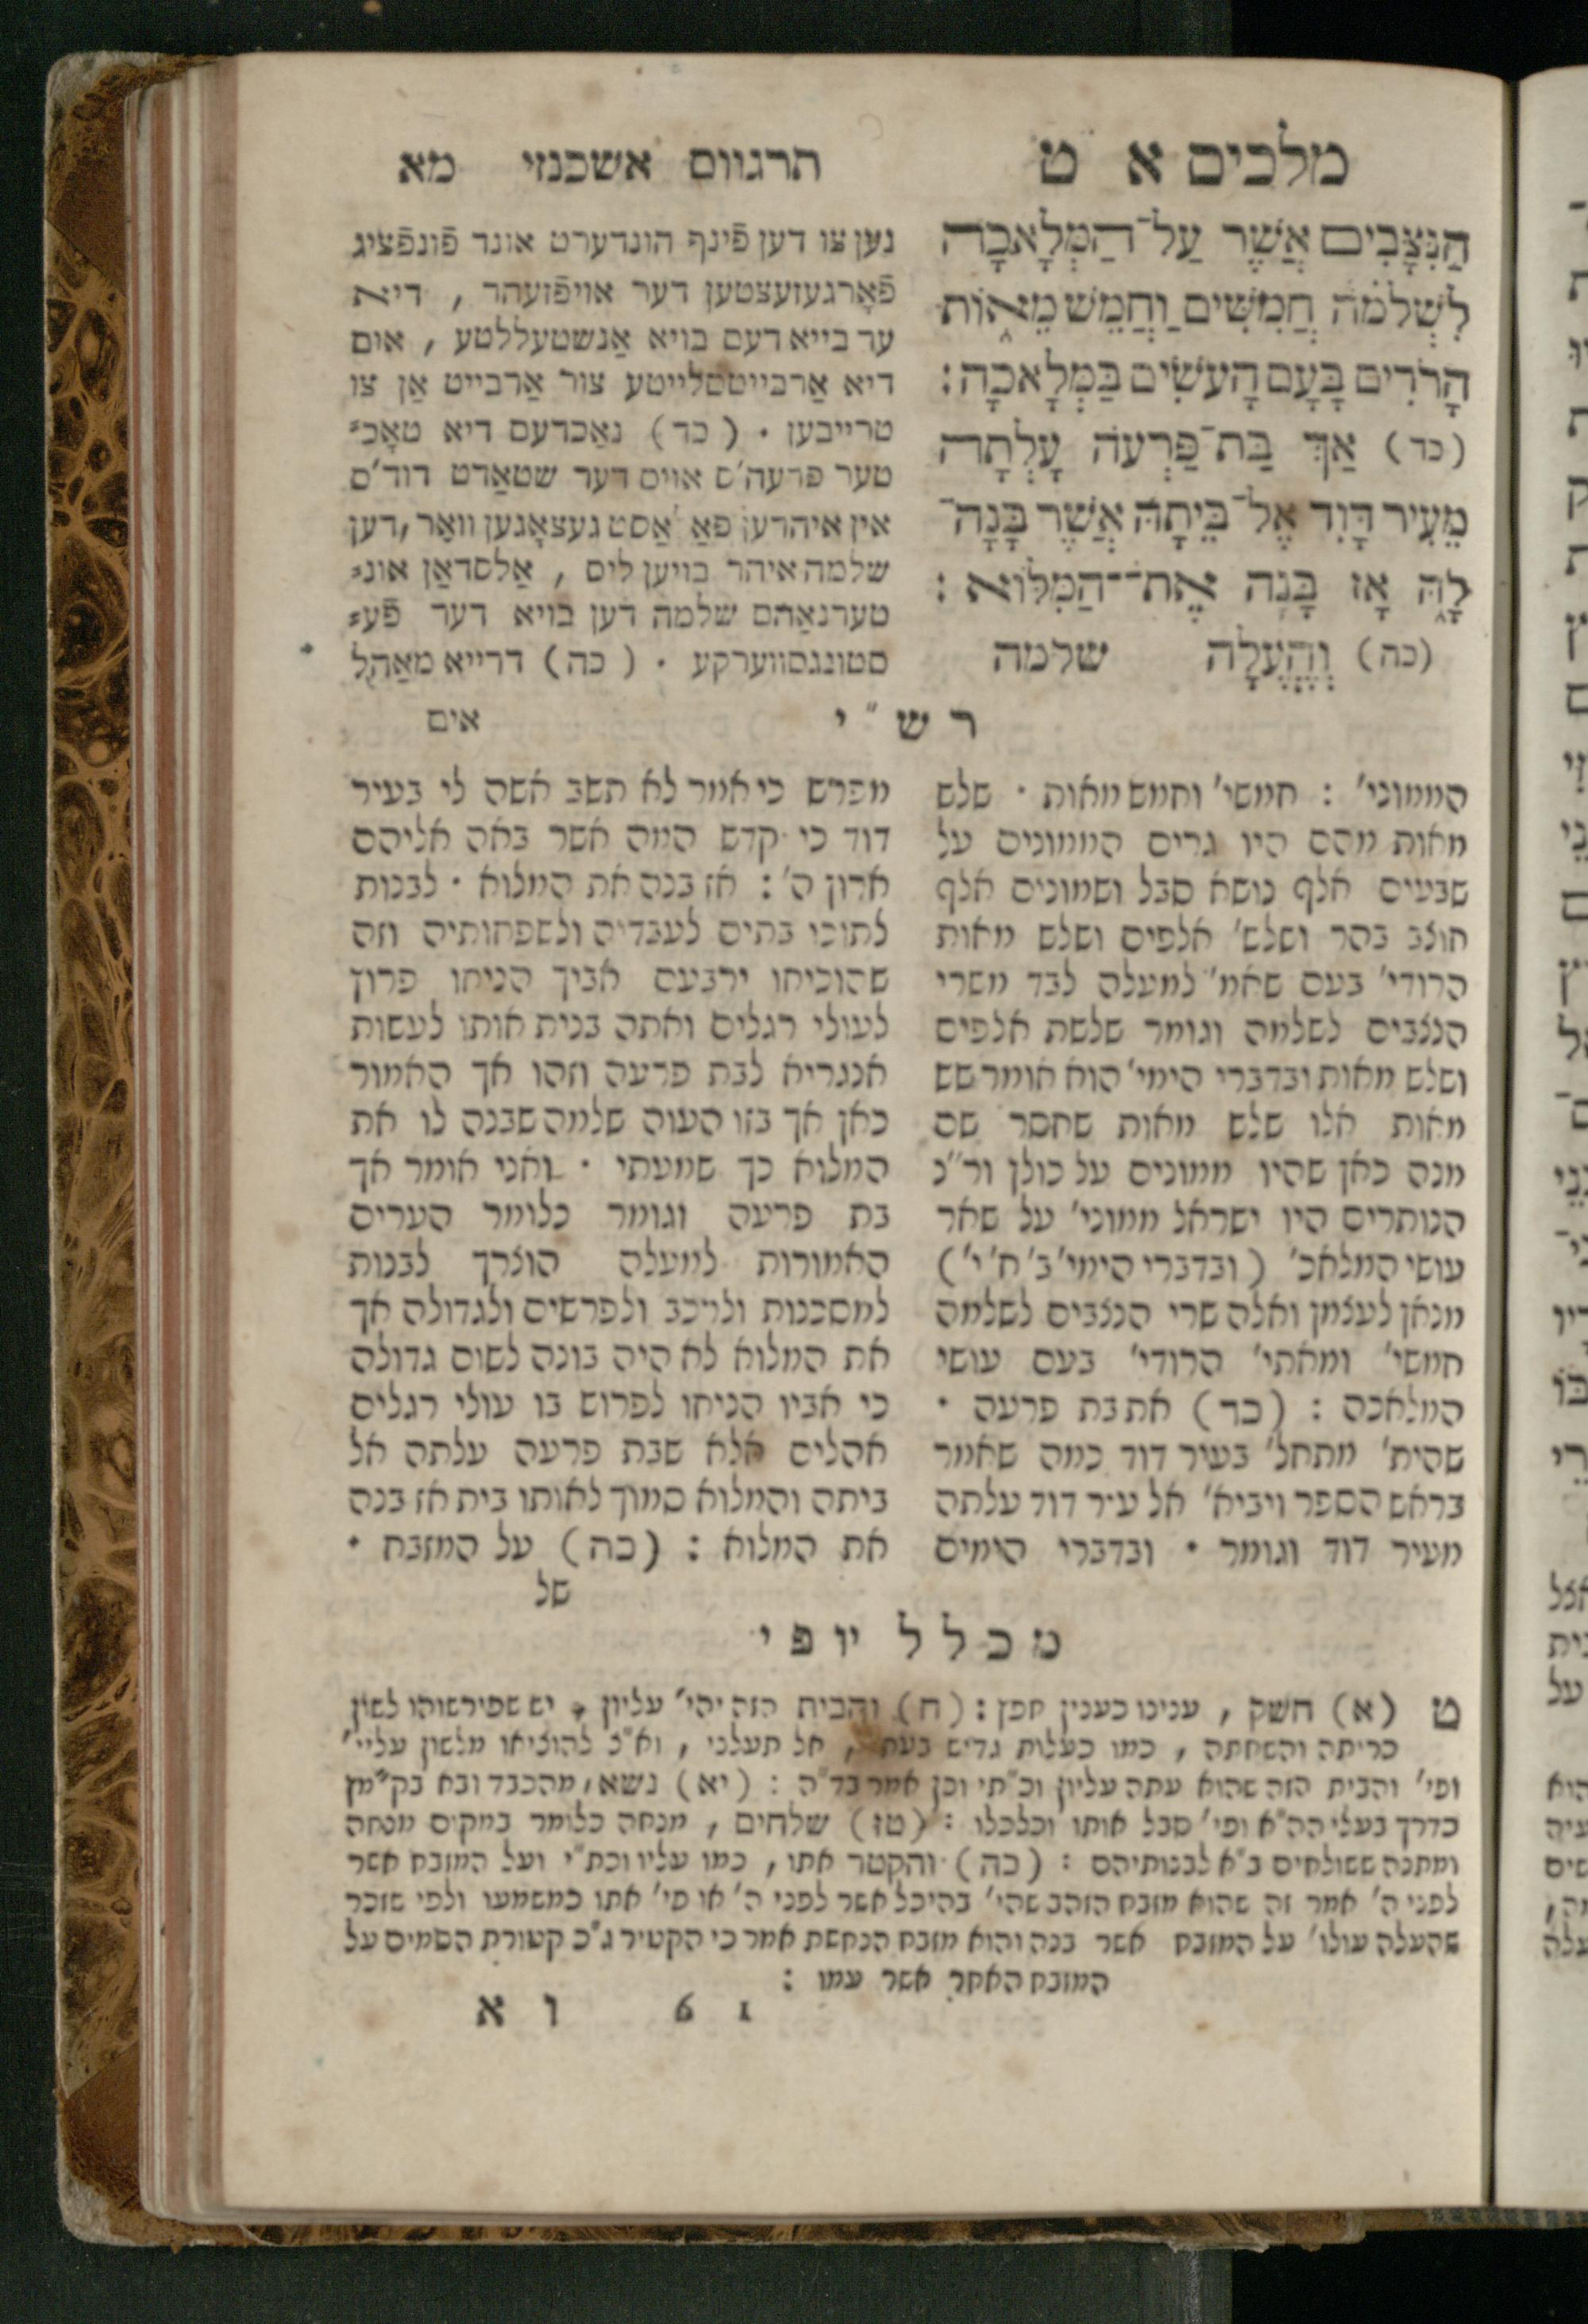 מלכים א ט
תרגוום אשכנזי מא
הַנִּצָּבִים אֲשֶׁר עַל־הַמְּלָאכָה
לִשְׁלֹמֹה חֲמִשִּׁים וַחֲמֵשׁ מֵאוֹת
הָרֹדִים בָּעָם הָעֹשִׂים בַּמְּלָאכָה:
(כד) אַךְ בַּת־פַּרְעֹה עָלְתָה
מֵעִיר דָּוִד אֶל־בֵּיתָהּ אֲשֶׁר בָּנָה־
לָהּ אָז בָּנָה אֶת־הַמִּלּוֹא:
(כה) וְהֶעֱלָה שלמה
נען צו דען פֿינף הונדערט אונד פֿונפֿציג
פֿאָרגעזעצטען דער אויפֿזעהר, דיא
ער בייא דעם בויא אַנשטעללטע, אום
דיא אַרבייטסלייטע צור אַרבייט אַן צו
טרייבען. (כד) נאַכדעם דיא טאָכ⸗
טער פרעה'ס אויס דער שטאַדט דוד'ס
אין איהרען פאַלאַסט געצאָגען וואַר, דען
שלמה איהר בויען ליס, אַלסדאַן אונ⸗
טערנאַהם שלמה דען בויא דער פֿע⸗
סטונגסווערקע. (כה) דרייא מאַהל
אים
רש"י
הממוני': חמשי' וחמש מאות. שלש
מאות מהם היו גרים הממונים על
שבעים אלף נושא סבל ושמונים אלף
חוצב בהר ושלש' אלפים ושלש מאות
הרודי' בעם שאמ' למעלה לבד משרי
הנצבים לשלמה וגומר שלשת אלפים
ושלש מאות ובדברי הימי' הוא אומר שש
מאות אלו שלש מאות שחסר שם
מנה כאן שהיו ממונים על כולן ור"נ
הנותרים היו ישראל ממוני' על שאר
עושי המלאכ' (ובדברי הימי' ב' ח' י')
מנאן לעצמן ואלה שרי הנצבים לשלמה
חמשי' ומאתי' הרודי' בעם עושי
המלאכה: (כד) את בת פרעה.
שהית' מתחל' בעיר דוד כמה שאמר
בראש הספר ויביא' אל עיר דוד עלתה
מעיר דוד וגומר. ובדברי הימים
מפרש כי אמר לא תשב אשה לי בעיר
דוד כי קדש המה אשר באה אליהם
ארון ה': אז בנה את המלוא. לבנות
לתוכו בתים לעבדיה ולשפחותיה וזה
שהוכיחו ירבעם אביך הניחו פרוץ
לעולי רגלים ואתה בנית אותו לעשות
אנגריא לבת פרעה וזהו אך האמור
כאן אך בזו העוה שלמה שבנה לו את
המלוא כך שמעתי. ואני אומר אך
בת פרעה וגומר כלומר הערים
האמורות למעלה הוצרך לבנות
למסכנות ולרכב ולפרשים ולגדולה אך
את המלוא לא היה בונה לשום גדולה
כי אביו הניחו לפרוש בו עולי רגלים
אהלים אלא שבת פרעה עלתה אל
ביתה והמלוא סמוך לאותו בית אז בנה
את המלוא: (כה) על המזבח.
של
מכלל יופי
ט (א) חשק, ענינו כענין חפץ: (ח) והבית הזה יהי' עליון. יש שפירשוהו לשון
כריתה והשחתה, כמו כעלות גדיש בעתו, אל תעלני, וא"כ להוציאו מלשון עליי'
ופי' והבית הזה שהוא עתה עליון וכ"תי וכן אמר בד"ה: (יא) נשא, מהכבד ובא בק"מץ
כדרך בעלי הה"א ופי' סבל אותו וכלכלו: (טז) שלחים, מנחה כלומר במקום מנחה
ומתנה ששולחים ב"א לבנותיהם: (כה) והקטר אתו, כמו עליו וכת"י ועל המזבח אשר
לפני ה' אמר זה שהוא מזבח הזהב שהי' בהיכל אשר לפני ה' או פי' אתו כמשמעו ולפי שזכר
שהעלה עולו' על המזבח אשר בנה והוא מזבח הנחשת אמר כי הקטיר ג"כ קטורת הסמים על
המזבח האחר אשר עמו:
1 6 וא